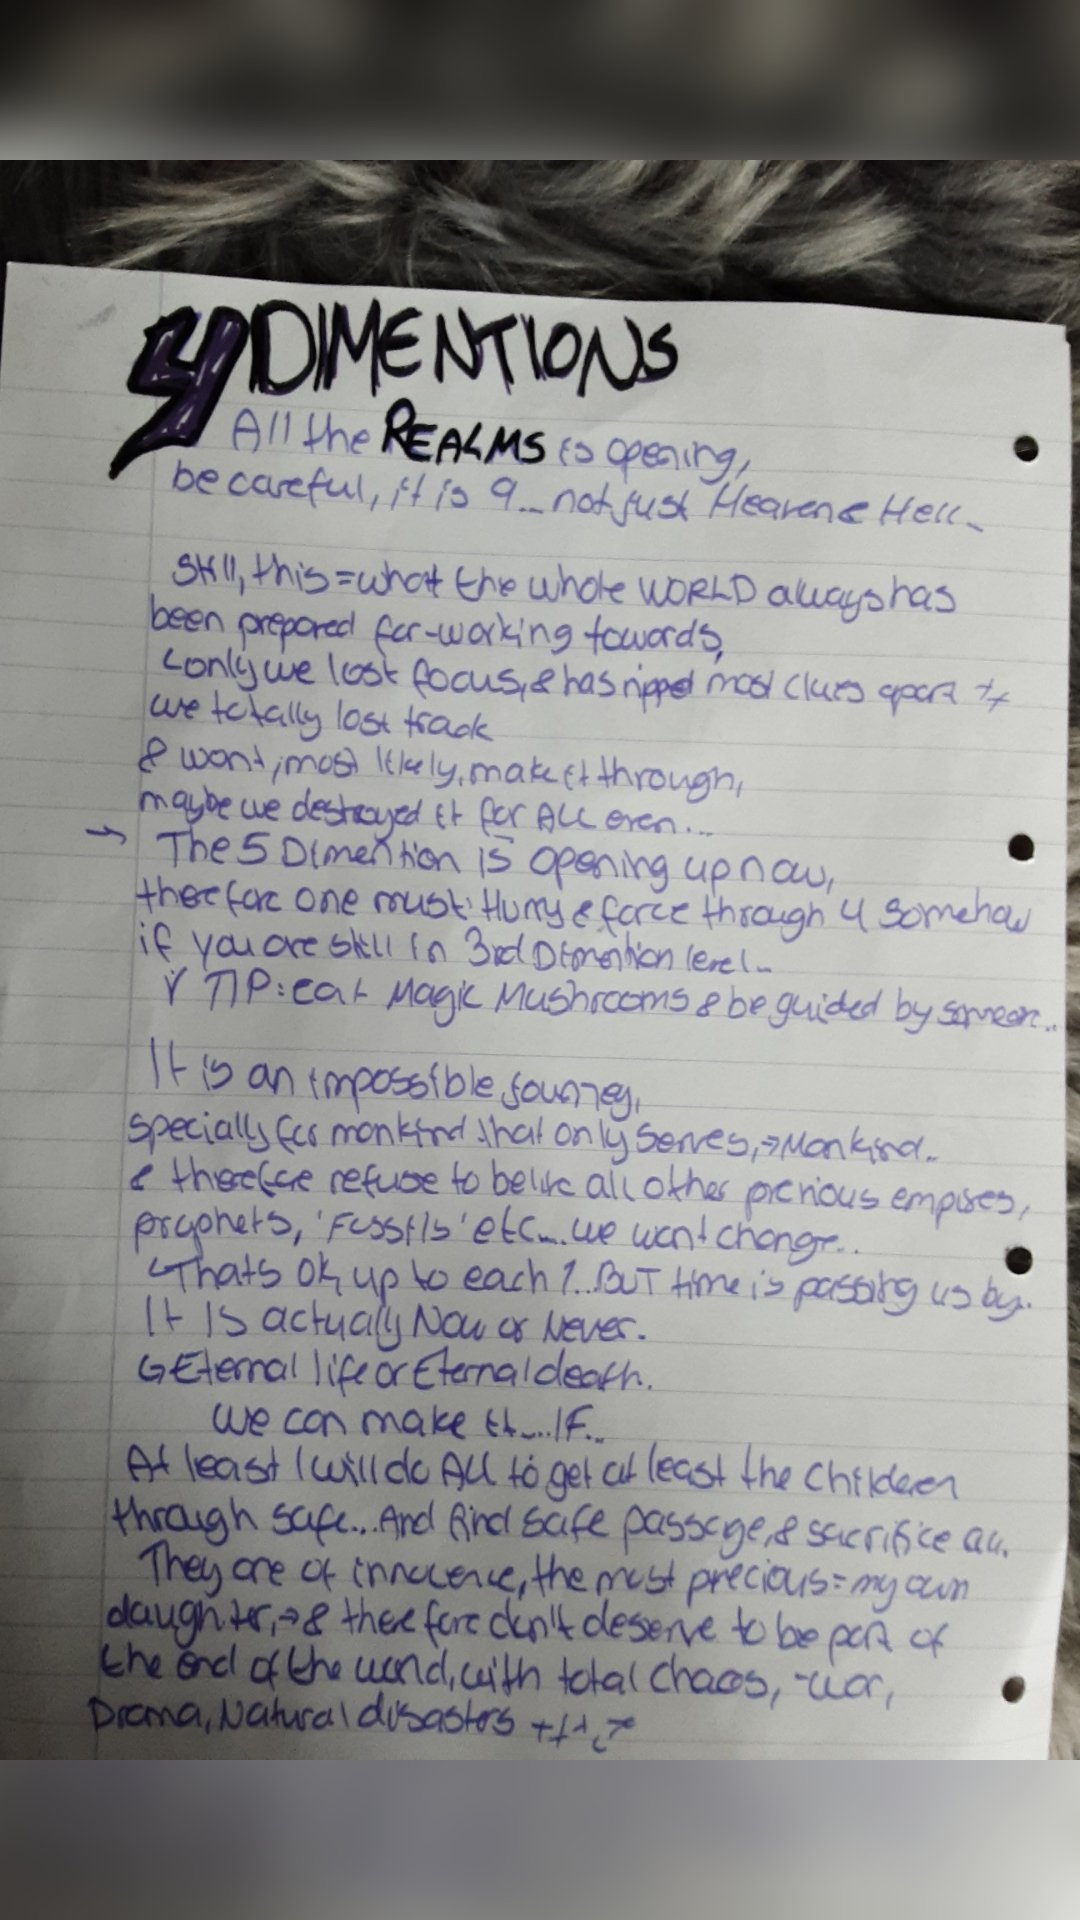 DIMENTIONS
All the REALMS is opening,
be careful, it is 9... not just Heaven & Hell..
Still, this = what the whole WORLD always has
been prepared for-working towards,
only we lost focus, & has ripped most clues apart ++
we totally lost track
& wont, most likely, make it through,
maybe we destroyed it for ALL even...
→ The 5 Dimention is opening up now,
therefore one must: Hurry & force through 4 somehow
if you are still in 3rd Dimention level..
TIP: eat Magic Mushrooms & be guided by someone..
It is an impossible journey,
specially for mankind that only serves, → Mankind..
& therefore refuse to belive all other previous empires,
prophets, 'Fossils' etc.... we wont change...
Thats ok, up to each 1.. BUT time is passing us by.
It Is actually Now or Never.
Eternal life or Eternal death.
we can make it.... IF..
At least I will do ALL to get at least the children
through safe... And find safe passage, & sacrifice all.
They are of innocence, the most precious = my own
daughter, → & therefore don't deserve to be part of
the end of the world, with total chaos, -war,
Drama, Natural disasters +++